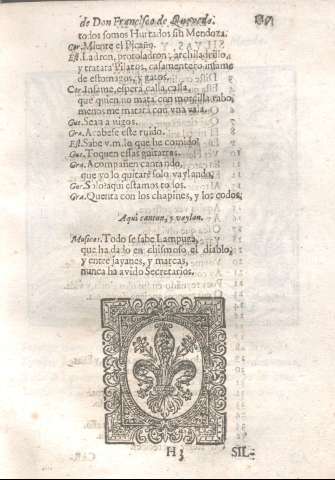 de Don Francisco de Quevedo.
todos somos Hurtados sin Mendoza.
Cor. Miente el Picaño.
Est. Ladron, protoladron, archiladrillo,
y tratara Pilatos, casamentero infame
de estomagos, y gatos.
Cor. Infame, espera, calla, calla,
que quien no mata con morcilla rabo,
menos me matarà con vna vaca.
Gut. Sean amigos.
Gra. Acabese este ruido.
Est. Sabe v.m. lo que he comido?
Gut. Toquen essas guitarras.
Gra. Acompañen cantando,
que yo lo quitarè solo vaylando.
Gut. Solo? aqui estamos todos.
Gra. Quenta con los chapines, y los codos.
Aqui cantan, y vaylan.
Musicos. Todo se sabe Lampuga,
que ha dado en chismoso el diablo,
y entre jayanes, y marcas,
nunca ha avido Secretarios.
H 3 SIL-